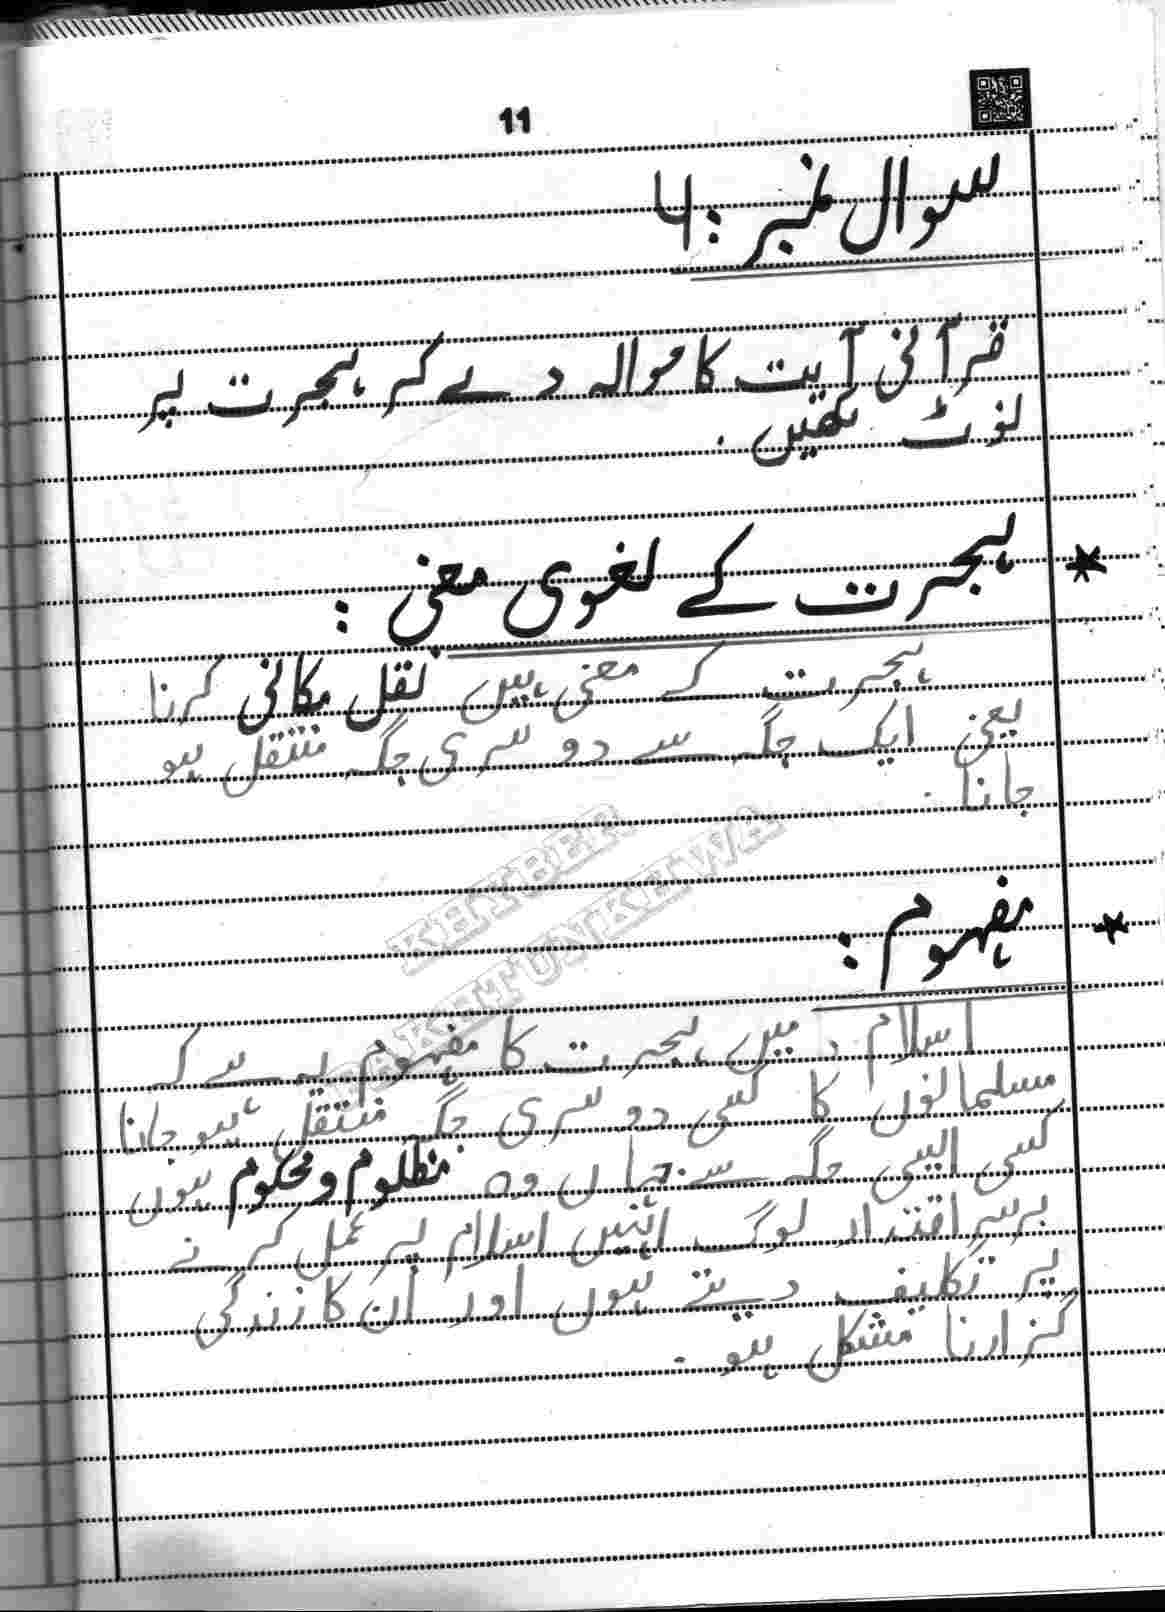 11
سوال نمبر :4
قرآنی آیت کا حوالہ دے کر ہجرت پر
نوٹ لکھیں .
* ہجرت کے لغوی معنی :
ہجرت کے معنی ہیں نقل مکانی کرنا
یعنی ایک جگہ سے دوسری جگہ منتقل ہو
جانا .
* مفہوم :
KHYBER
PAKHTUNKHWA
اسلام میں ہجرت کا مفہوم یہ ہے کہ
مسلمانوں کا کسی دوسری جگہ منتقل ہو جانا
کسی ایسی جگہ سے جہاں وہ مظلوم و محکوم ہوں
برسر اقتدار لوگ انہیں اسلام پر عمل کرنے
پر تکلیف دیتے ہوں اور ان کا زندگی
گزارنا مشکل ہو .